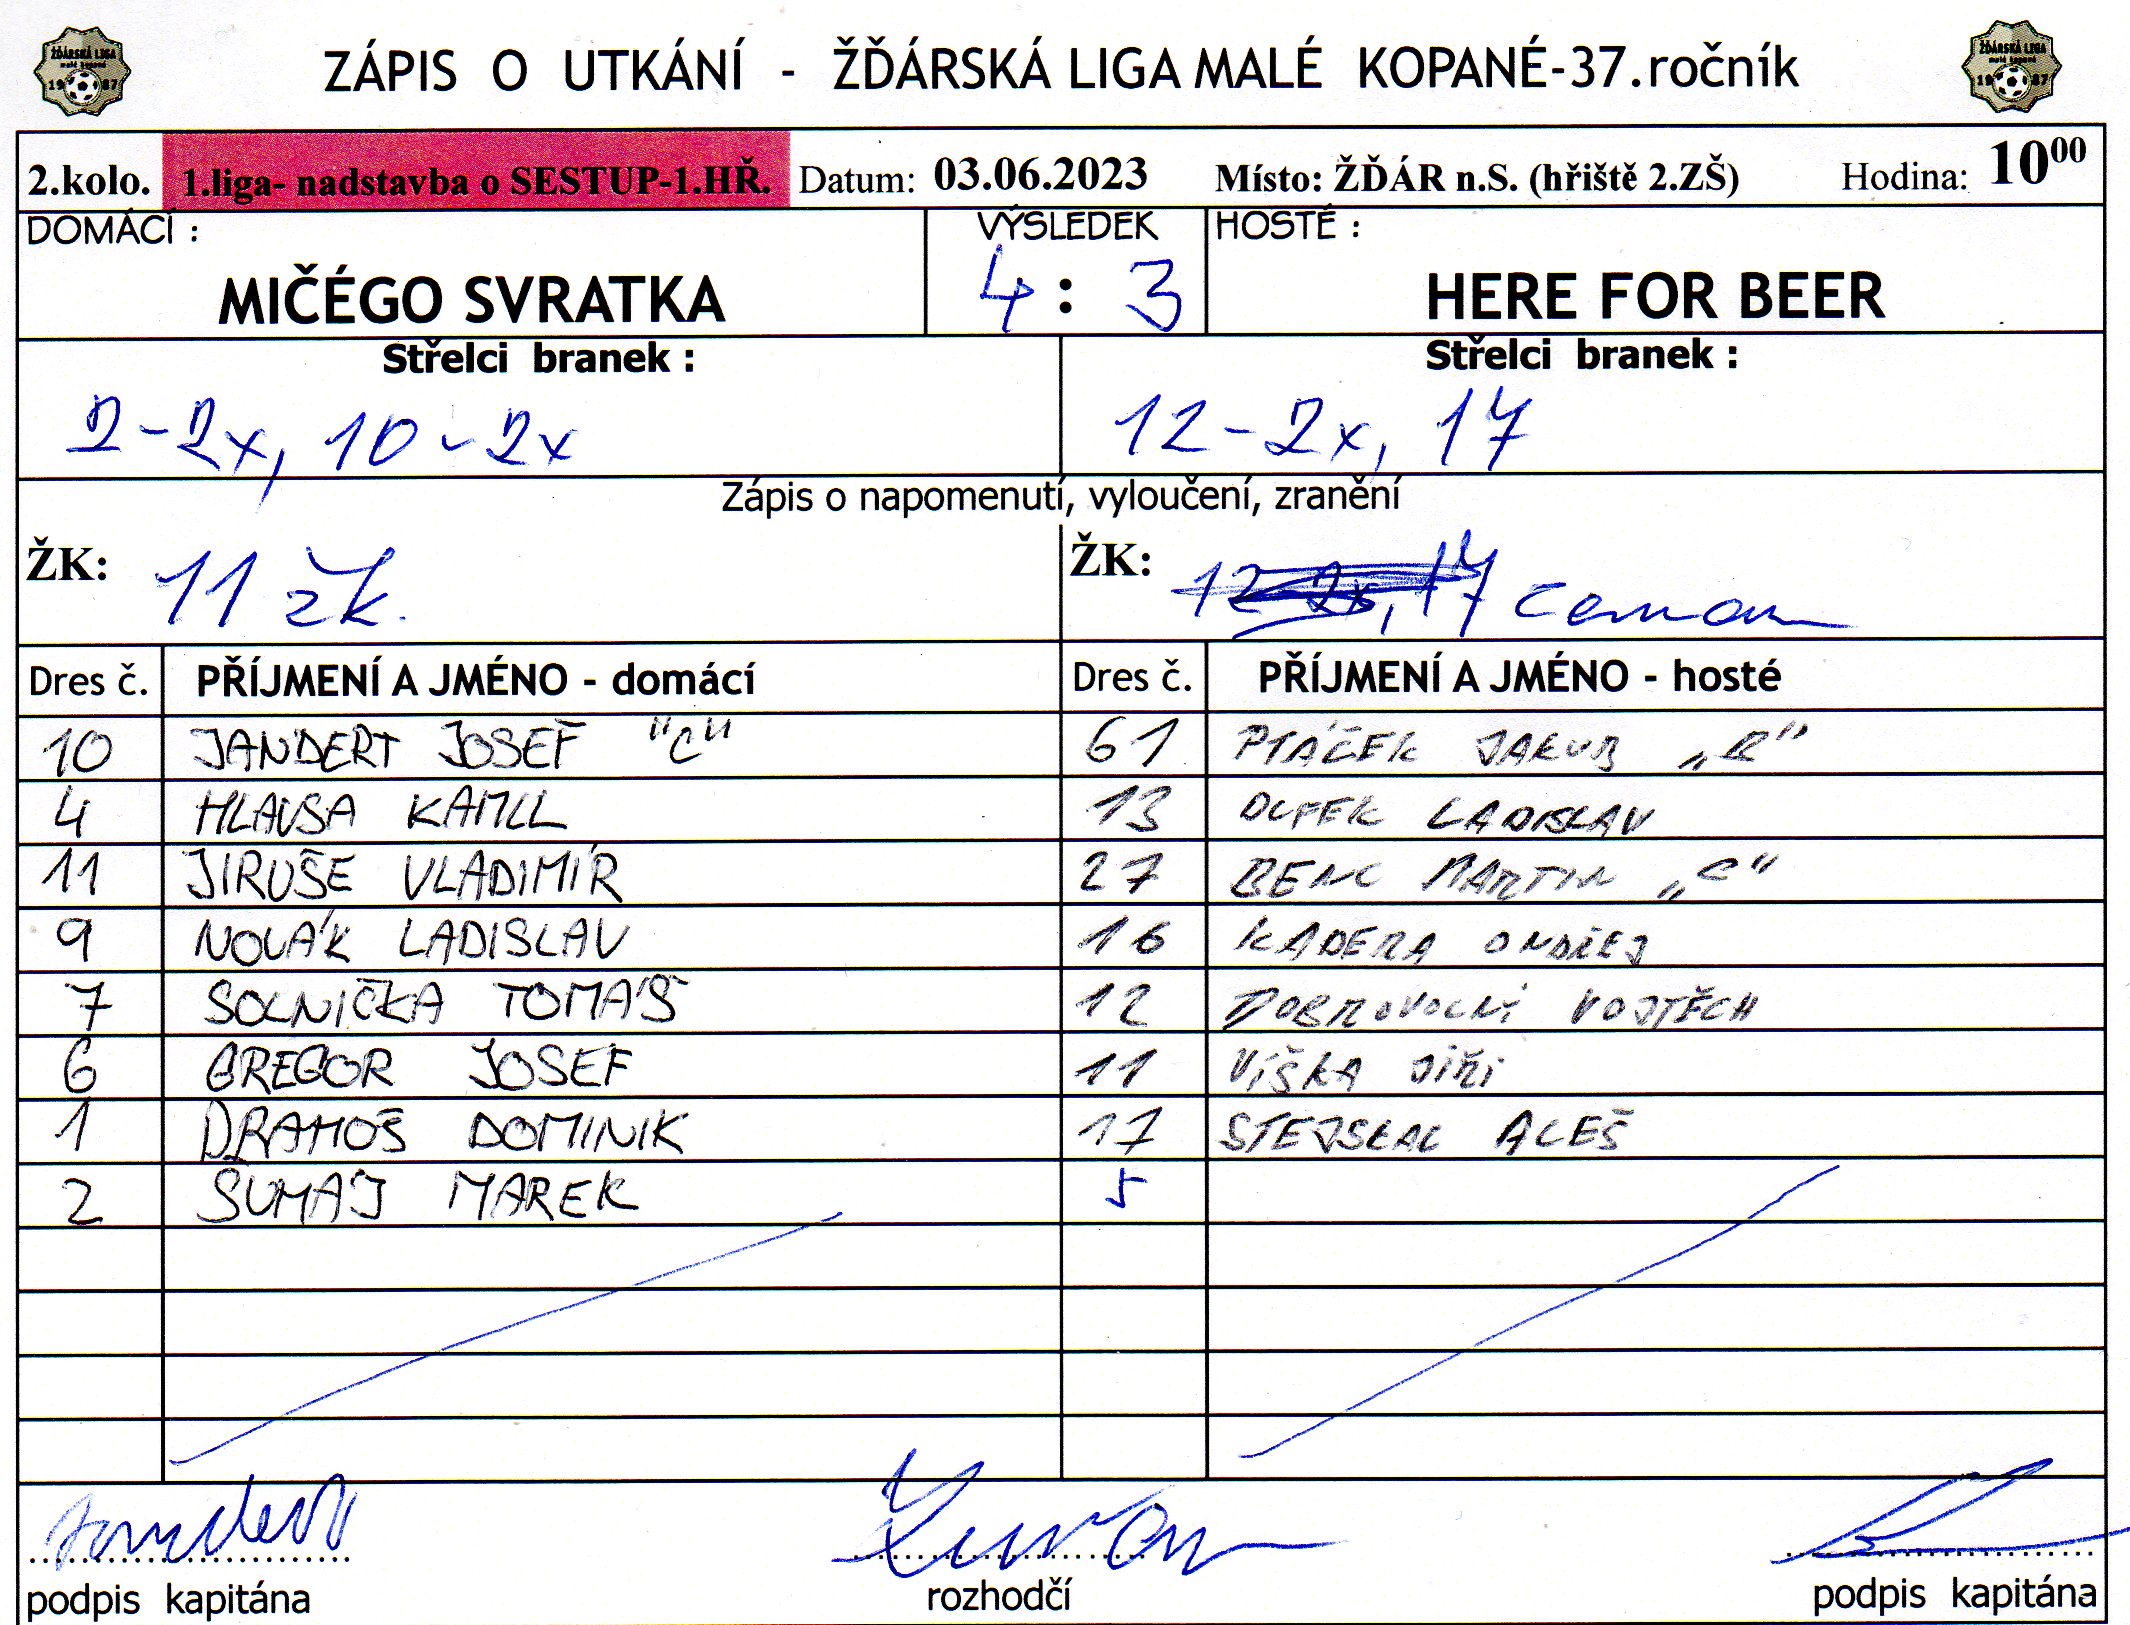 ŽĎÁRSKÁ LIGA
malé kopané
1987
ZÁPIS O UTKÁNÍ - ŽĎÁRSKÁ LIGA MALÉ KOPANÉ-37.ročník
ŽĎÁRSKÁ LIGA
malé kopané
1987
2.kolo. 1.liga- nadstavba o SESTUP-1.HŘ. Datum: 03.06.2023 Místo: ŽĎÁR n.S. (hřiště 2.ZŠ) Hodina: 10⁰⁰
DOMÁCÍ : VÝSLEDEK HOSTÉ :
MIČÉGO SVRATKA 4 : 3 HERE FOR BEER
Střelci branek : Střelci branek :
2-2x, 10-2x 12-2x, 17
Zápis o napomenutí, vyloučení, zranění
ŽK: 11 žk. ŽK:
Dres č. PŘÍJMENÍ A JMÉNO - domácí Dres č. PŘÍJMENÍ A JMÉNO - hosté
10 JANDERT JOSEF "C" 61 PTÁČEK JAKUB
4 HLAVSA KAMIL 13 DUFEK LADISLAV
11 JIRUŠE VLADIMÍR 27 BENC MARTIN „C"
9 NOVÁK LADISLAV 16 KADERA ONDŘEJ
7 SOLNIČKA TOMÁŠ 12 DOBROVOLNÝ VOJTĚCH
6 GREGOR JOSEF 11 VÍŠKA JIŘI
1 DRAHOŠ DOMINIK 17 STEJSKAL ALEŠ
2 SUMÁJ MAREK 5
podpis kapitána rozhodčí podpis kapitána